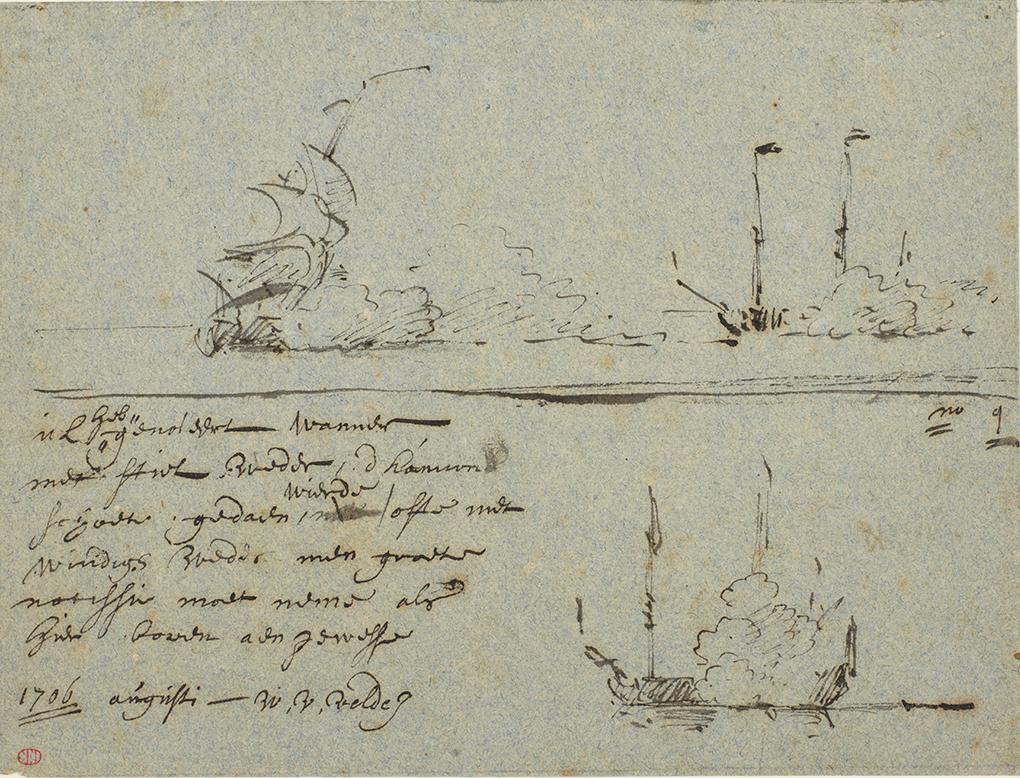 no 9
ik heb genoteert wanneer
met stiel weder, d kanon
schoete gedaen wierde / ofte met
windigh weder men groete
notissie moet neme als
hier boven aen gewesse
1706 augusti — W. V. Velde J